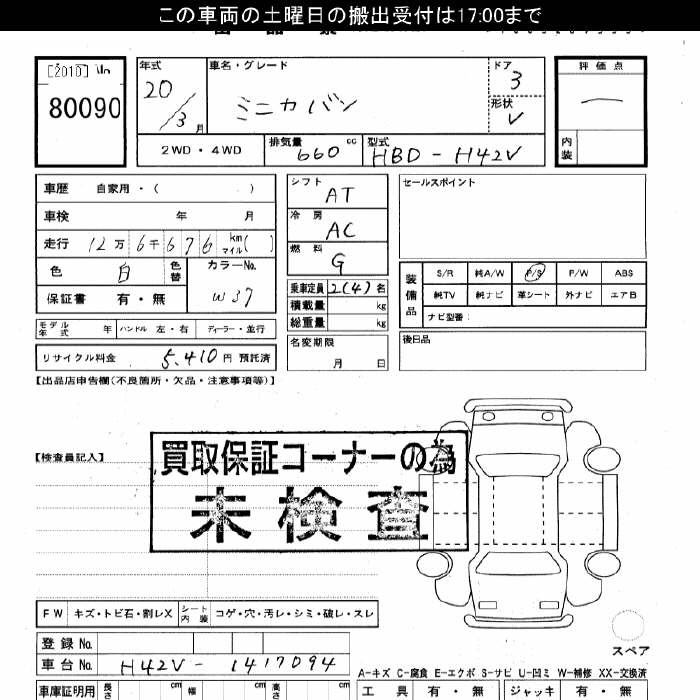 この車両の土曜日の搬出受付は17:00まで
[2010]
80090
年式
20/3月
車名・グレード
ミニカバン
ドア
3
形状
V
評価点
一
内装
2WD・4WD
排気量
660cc
型式
HBD-H42V
車歴 自家用・( )
車検 年 月
走行 12万6千676km マイル( )
色 白 色替 カラーNo. W37
保証書 有・無
シフト AT
冷房 AC
燃料 G
乗車定員 2(4)名
積載量 kg
総重量 kg
セールスポイント
装備品 S/R 純A/W P/S P/W ABS
純TV 純ナビ 革シート 外ナビ エアB
ナビ型番:
モデル年式 年 ハンドル 左・右 ディーラー・並行
名変期限 月 日
後日品
リサイクル料金 5,410円 預託済
【出品店申告欄(不良箇所・欠品・注意事項等)】
【検査員記入】
買取保証コーナーの為
未検査
FW キズ・トビ石・割レX シート内装 コゲ・穴・汚レ・シミ・破レ・スレ
スペア
登録No.
車台No. H42V-1417094
A-キズ C-腐食 E-エクボ S-サビ U-凹ミ W-補修 XX-交換済
車庫証明用 長さ cm 幅 cm 高さ cm
工具 有・無 ジャッキ 有・無